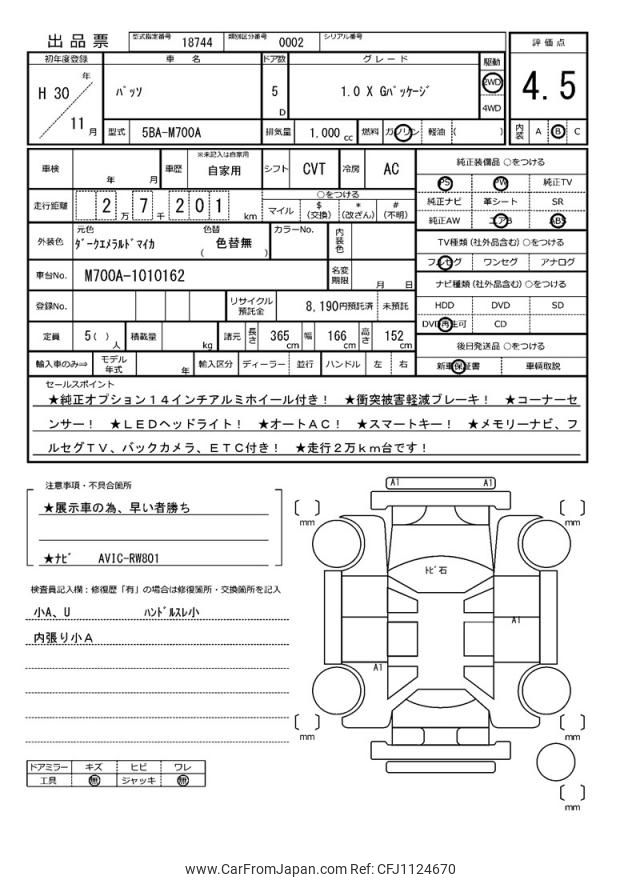 出品票 型式指定番号 18744 類別区分番号 0002 シリアル番号
評価点
4.5
内装 A B C
初年度登録 車名 ドア数 グレード 駆動
H 30 年 11 月 パッソ 5 D 1.0 X Gパッケージ 2WD 4WD
型式 5BA-M700A 排気量 1.000 cc 燃料 ガソリン 軽油 ( )
車検 年 月 車歴 ※未記入は自家用 自家用 シフト CVT 冷房 AC
走行距離 2万7千201 km ○をつける マイル $(交換) *(改ざん) #(不明)
外装色 元色 ダークエメラルドマイカ 色替 ( 色替無 ) カラーNo. 内装色
車台No. M700A-1010162 名変期限 月 日
登録No. リサイクル預託金 8,190円預託済 未預託
定員 5( )人 積載量 kg 諸元 長さ 365 cm 幅 166 cm 高さ 152 cm
輸入車のみ⇒ モデル年式 年 輸入区分 ディーラー 並行 ハンドル 左 右
純正装備品 ○をつける
PS PW 純正TV
純正ナビ 革シート SR
純正AW エアB ABS
TV種類(社外品含む) ○をつける
フルセグ ワンセグ アナログ
ナビ種類(社外品含む) ○をつける
HDD DVD SD
DVD再生可 CD
後日発送品 ○をつける
新車保証書 車輌取説
セールスポイント
★純正オプション14インチアルミホイール付き! ★衝突被害軽減ブレーキ! ★コーナーセ
ンサー! ★LEDヘッドライト! ★オートAC! ★スマートキー! ★メモリーナビ、フ
ルセグTV、バックカメラ、ETC付き! ★走行2万km台です!
注意事項・不具合箇所
★展示車の為、早い者勝ち
★ナビ AVIC-RW801
検査員記入欄:修復歴「有」の場合は修復箇所・交換箇所を記入
小A、U ハンドルスレ小
内張り小A
ドアミラー キズ ヒビ ワレ
工具 無 ジャッキ 無
A1 A1
mm mm
トビ石
A1
A1
mm mm
mm
www.CarFromJapan.com Ref: CFJ1124670